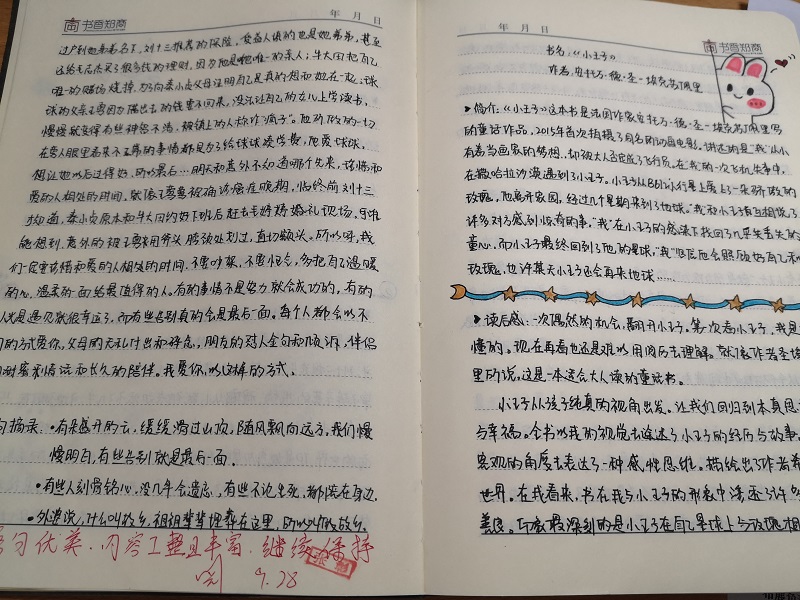 书香知商
年 月 日
过户到他弟弟名下,刘十三推荐的保险,受益人填的也是她弟弟,甚至
还给毛志杰买了很多钱的理财,因为他是她唯一的亲人;牛大田把自己
唯一的赌场烧掉,力向秦小贞父母证明自己是真的想和她在一起;球
球的父亲王勇因为隔壁的钱要不回来,没法让自己的女儿上学读书,
慢慢就变得有些神智不清,被镇上的人称作"疯子"。他所做的一切
在旁人眼里看来不正常的事情都是为了给球球凑学费,他爱球球,
想让她以后过得好。所以最后……明天和意外不知道哪个先来,请珍惜和
爱的人相处的时间。就像王莺莺被确诊癌症晚期,临终前刘十三
才知道,秦小贞原本和牛大田约好下班后赶去毛婷婷婚礼现场,可谁
能想到,意外的被王勇用斧头 胳膊处划过,直切额头。所以呀,我
们一定要珍惜和爱的人相处的时间,不要吵架,不要怄气,多把自己温暖
的心,温柔的一面给最值得的人。有的事情不是努力就会成功的,有的
人光是遇见就很幸运了,而有些告别真的会是最后一面。每个人都会以不
同的方式爱你,父母的无私付出和碎念,朋友的对人全句和倾诉,伴侣
的甜蜜和情话和长久的陪伴。我爱你,以这样的方式。
句摘录:•有朵盛开的云,缓缓滑过山顶,随风飘向远方,我们慢
慢明白,有些告别就是最后一面。
•有些人刻骨铭心,没几年会遗忘,有些不论生死,都陪在身边。
•外婆说,什么叫故乡,祖祖辈辈埋葬在这里,所以叫做故乡。
语句优美,内容工整且丰富,继续保持
9.28
年 月 日
书香知商
书名:《小王子》
作者:安托万·德·圣-埃克苏佩里
▶简介:《小王子》这本书是法国作家安托万·德·圣-埃克苏佩里写
的童话作品,2015年首次拍摄了同名的动画电影。讲述的是"我"从小
有着当画家的梦想,却被大人否定成了飞行员。在"我"的一次飞机失事中,
在撒哈拉沙漠遇到了小王子。小王子从B612小行星上爱上了一朵骄傲的
玫瑰,他离开家园,经过几个星期来到了地球。"我"和小王子互相相处了
许多对方感到惊奇的事,"我"在小王子的感染下找回了几乎丢失的
童心,而小王子最终回到了他的星球,"我"坚信他会照顾好自己和
玫瑰,也许某天小王子还会再来地球……
▶读后感:一次偶然的机会,翻开小王子。第一次看小王子,我是
懂的。现在再看也还是难以用阅历去理解。就像作者圣埃
里所说,这是一本适合大人读的童话书。
小王子从孩子纯真的视角出发。让我们回归到本真思
与幸福。全书以我的视觉去途述了小王子的经历与故事。
客观的角度去表达了一种感性思维。描绘出了作者
世界。在我看来,书在我与小王子的形象中渗透了许多
善良。印象最深刻的是小王子在自己星球上与玫瑰相